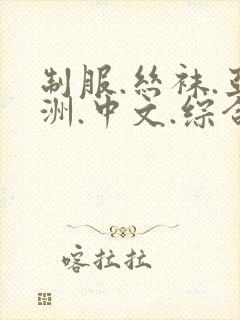 制服.丝袜.亚
洲.中文.综合
喀拉拉